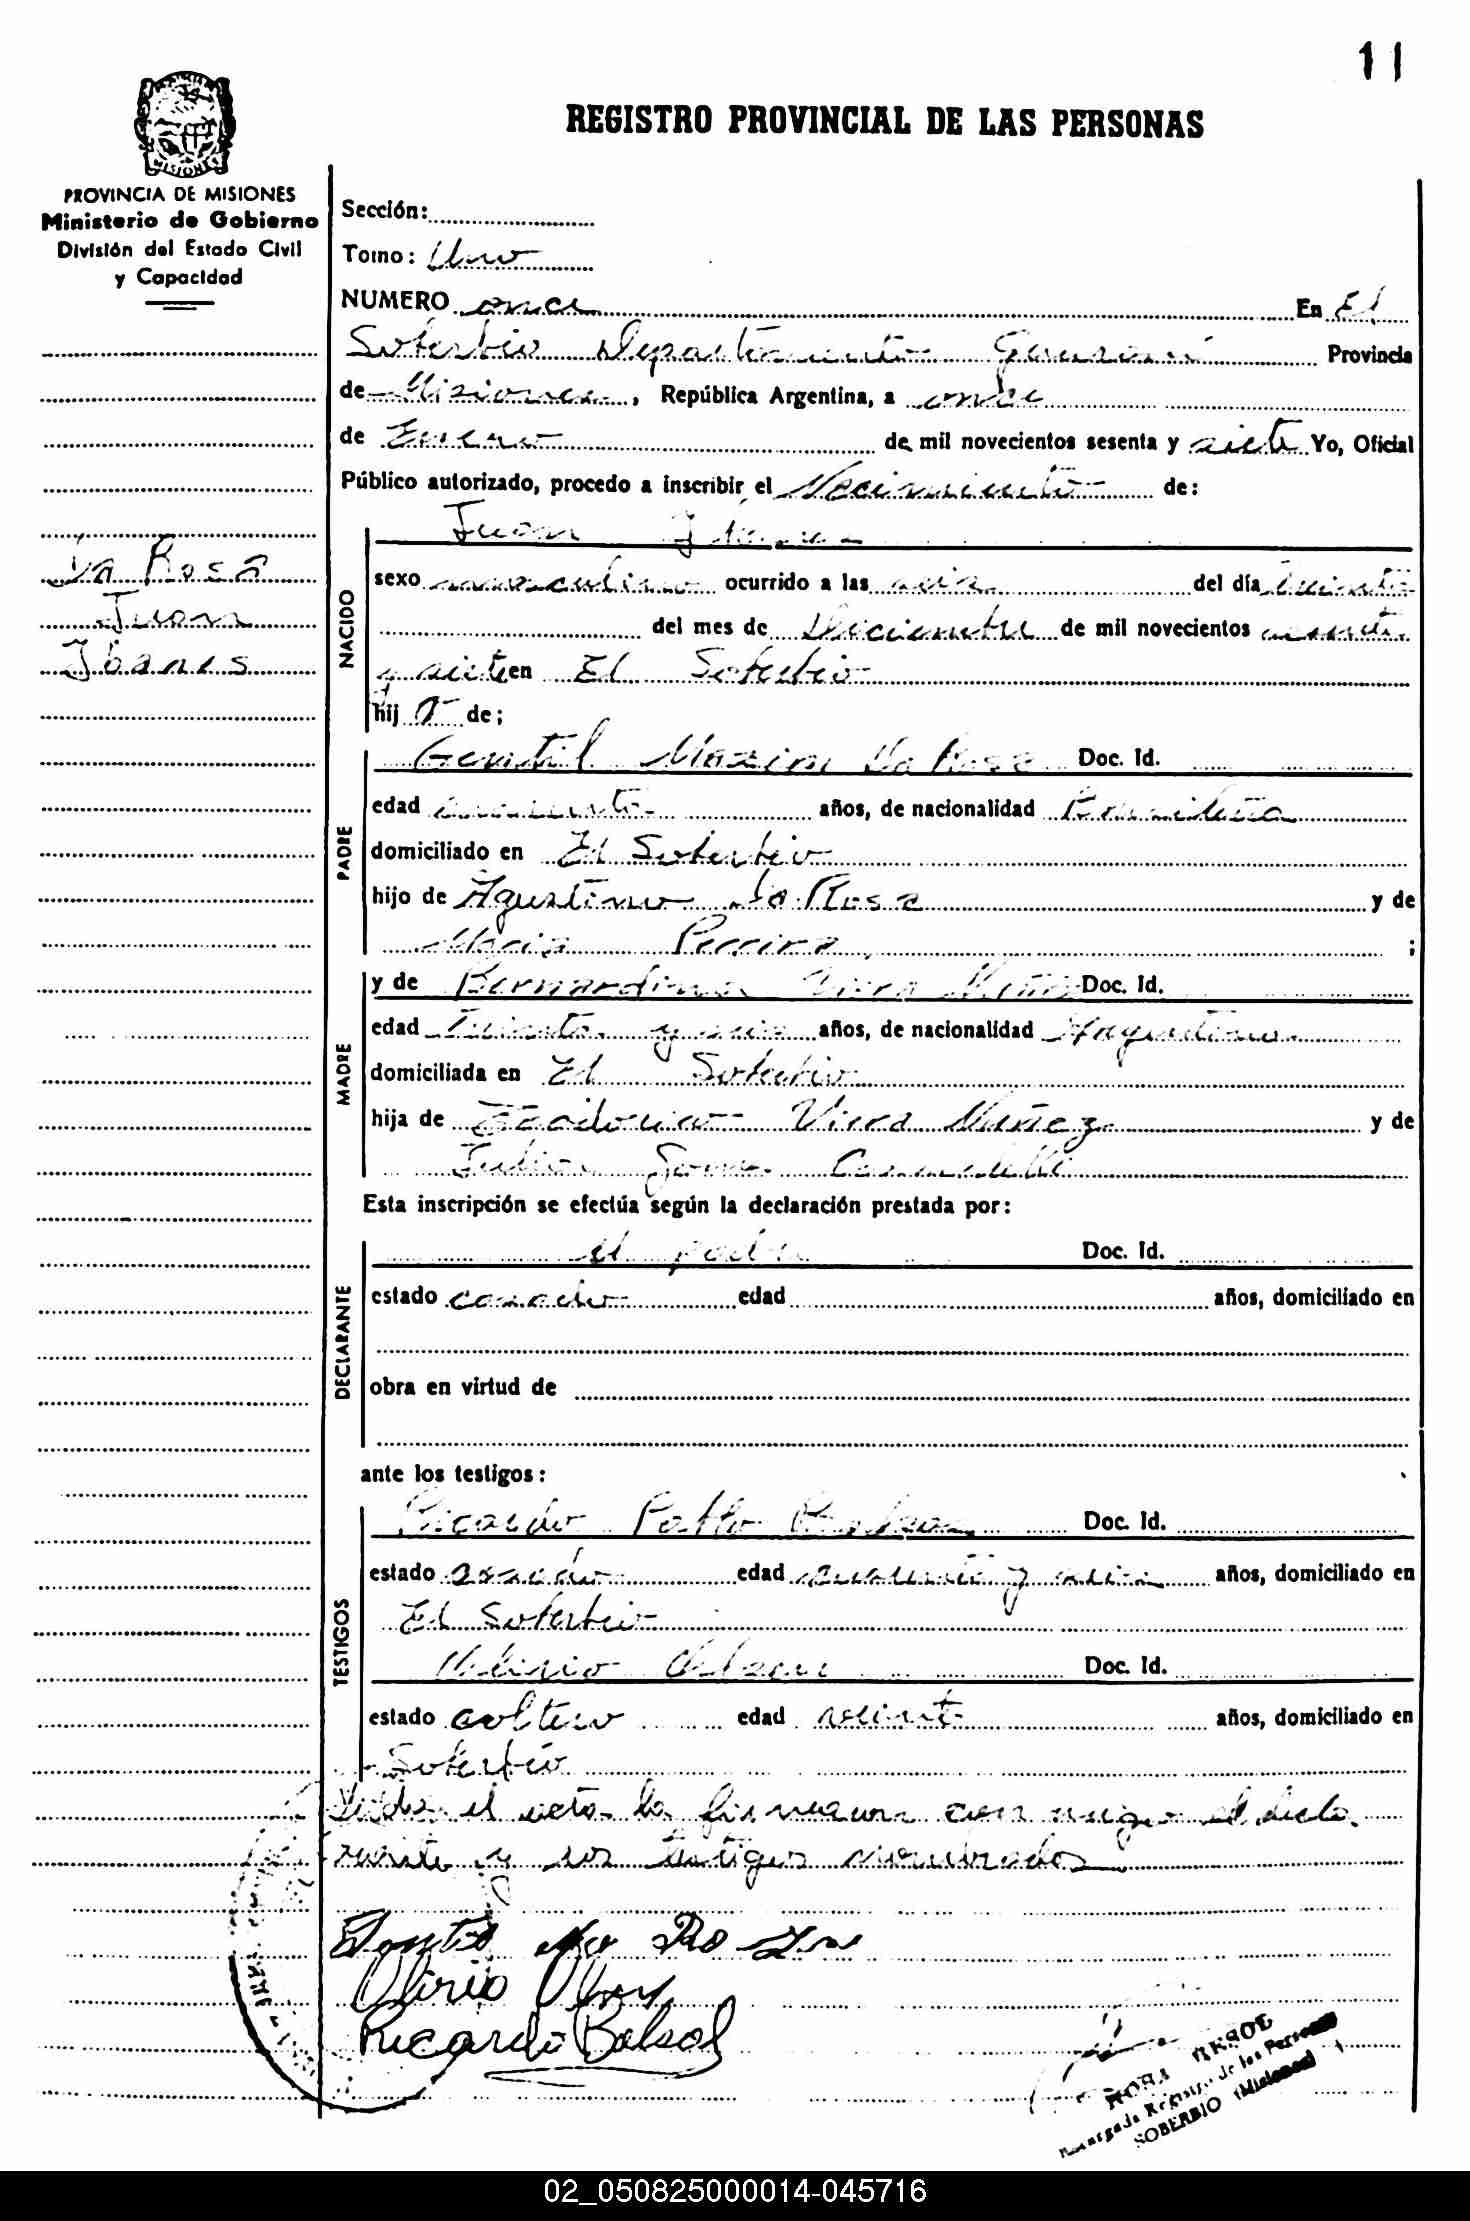 11
REGISTRO PROVINCIAL DE LAS PERSONAS
MISIONES
PROVINCIA DE MISIONES
Ministerio de Gobierno
División del Estado Civil
y Capacidad
Sección:
Tomo: Uno
NUMERO once En El
Soberbio Departamento Guaraní Provincia
de Misiones, República Argentina, a once
de Enero de mil novecientos sesenta y siete Yo, Oficial
Público autorizado, procedo a inscribir el Nacimiento de:
Da Rosa
Juan
Ibanes
NACIDO
Juan
sexo masculino ocurrido a las seis del día
del mes de Diciembre de mil novecientos sesenta
y siete en El Soberbio
hij o de;
PADRE
Gentil Da Rosa Doc. Id.
edad años, de nacionalidad Brasileña
domiciliado en El Soberbio
hijo de Agustino Da Rosa y de
Maria Pereira ;
MADRE
y de Bernardina Viera Doc. Id.
edad Treinta y seis años, de nacionalidad Argentina
domiciliada en El Soberbio
hija de Viera Muñez y de
Esta inscripción se efectúa según la declaración prestada por:
DECLARANTE
el padre Doc. Id.
estado casado edad años, domiciliado en
obra en virtud de
ante los testigos:
TESTIGOS
Ricardo Pablo Doc. Id.
estado casado edad cuarenta y seis años, domiciliado en
El Soberbio
Doc. Id.
estado soltero edad veinte años, domiciliado en
Soberbio
Leída el acta la firmaron con migo el decla
rante y los testigos nombrados
Da Rosa
Olirio
Ricardo Balsol
Registro de las Personas
SOBERBIO (Misiones)
02_050825000014-045716